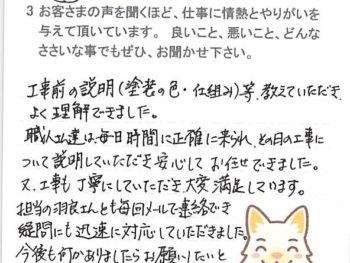 3 お客さまの声を聞くほど、仕事に情熱とやりがいを
与えて頂いています。 良いこと、悪いこと、どんな
ささいな事でもぜひ、お聞かせ下さい。
工事前の説明(塗装の色・仕組み)等、教えていただき
よく理解できました。
職人さん達は毎日時間に正確に来られ、その日の工事に
ついて説明していただき安心してお任せできました。
又、工事も丁寧にしていただき大変満足しています。
担当の羽良さんとも毎回メールで連絡でき
疑問にも迅速に対応していただきました。
今後も何かありましたらお願いしたいと